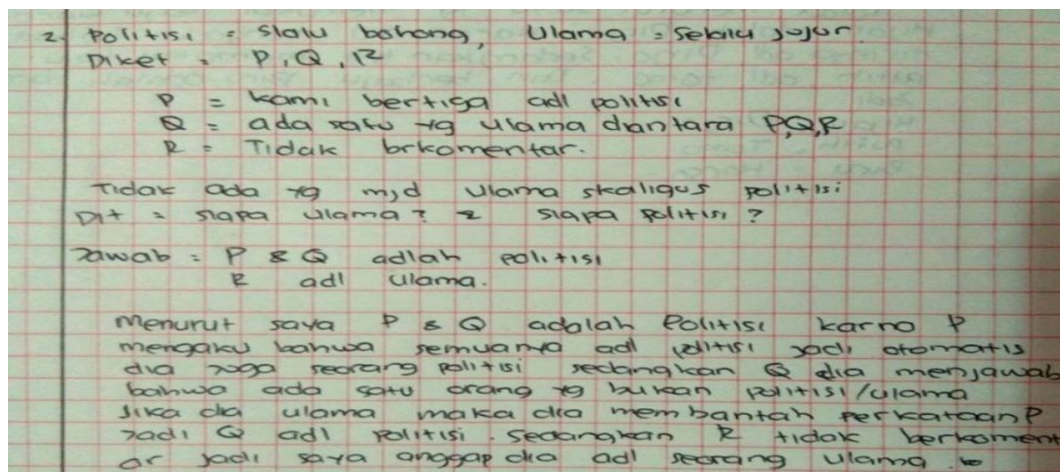 2. Politisi = slalu bohong, Ulama = selalu jujur.
Diket = P, Q, R
P = kami bertiga adl politisi
Q = ada satu yg ulama diantara P,Q,R
R = Tidak brkomentar.
Tidak ada yg mjd ulama skaligus politisi
Dit = siapa ulama? & siapa politisi?
Jawab = P & Q adlah politisi
R adl ulama.
Menurut saya P & Q adalah Politisi karno P
mengaku bahwa semuanya adl politisi jadi otomatis
dia juga seorang politisi sedangkan Q dia menjawab
bahwa ada satu orang yg bukan politisi/ulama
Jika dia ulama maka dia membantah perkataan P
Jadi Q adl politisi. Sedangkan R tidak berkoment
ar jadi saya anggap dia adl seorang ulama.